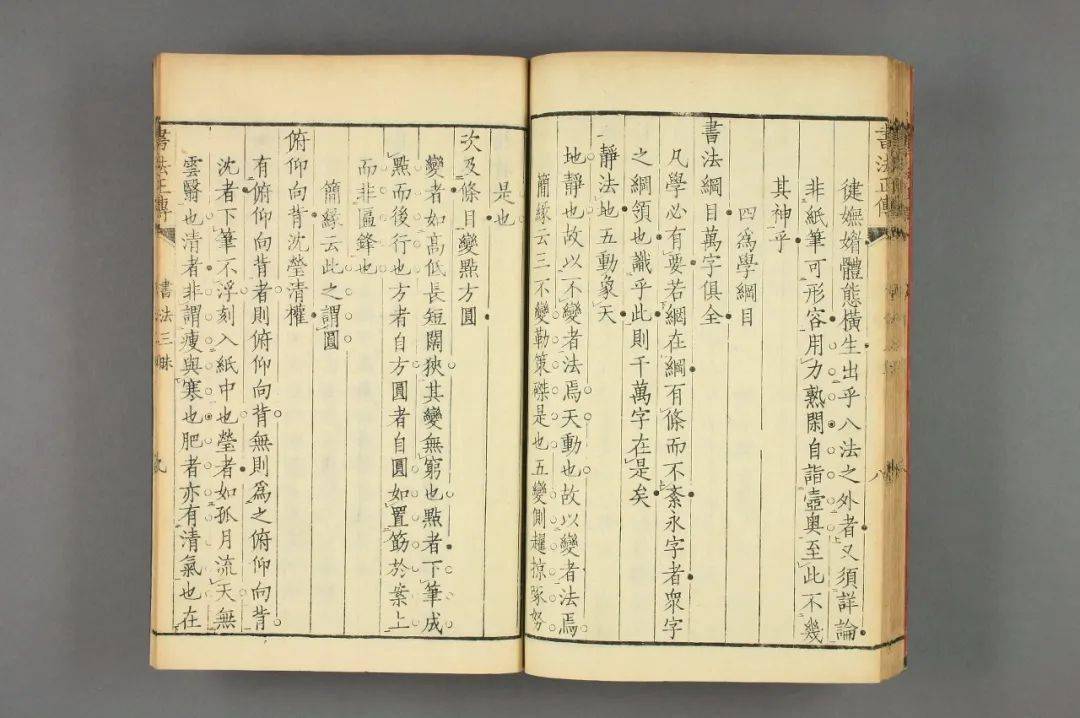 書法正傳
健嫵媚體態橫生出乎八法之外者又須詳論
非紙筆可形容用力熟閑自詣壺奧至此不幾
其神乎
四爲學綱目
書法綱目萬字俱全
凡學必有要若綱在綱有條而不紊永字者衆字
之綱領也識乎此則千萬字在是矣
一靜法地五動象天
地靜也故以不變者法焉天動也故以變者法焉
簡緣云三不變勒策磔是也五變側趯掠啄努
是也
次及條目變點方圓
變者如高低長短闊狹其變無窮也點者下筆成
點而後行也方者自方圓者自圓如置筯於案上
而非匾鋒也
簡緣云此之謂圓
俯仰向背沈瑩清㩲
有俯仰向背者則俯仰向背無則爲之俯仰向背
沈者下筆不浮刻入紙中也瑩者如孤月流天無
雲翳也清者非謂瘦與寒也肥者亦有清氣也在
書法正傳
書法三昧
九